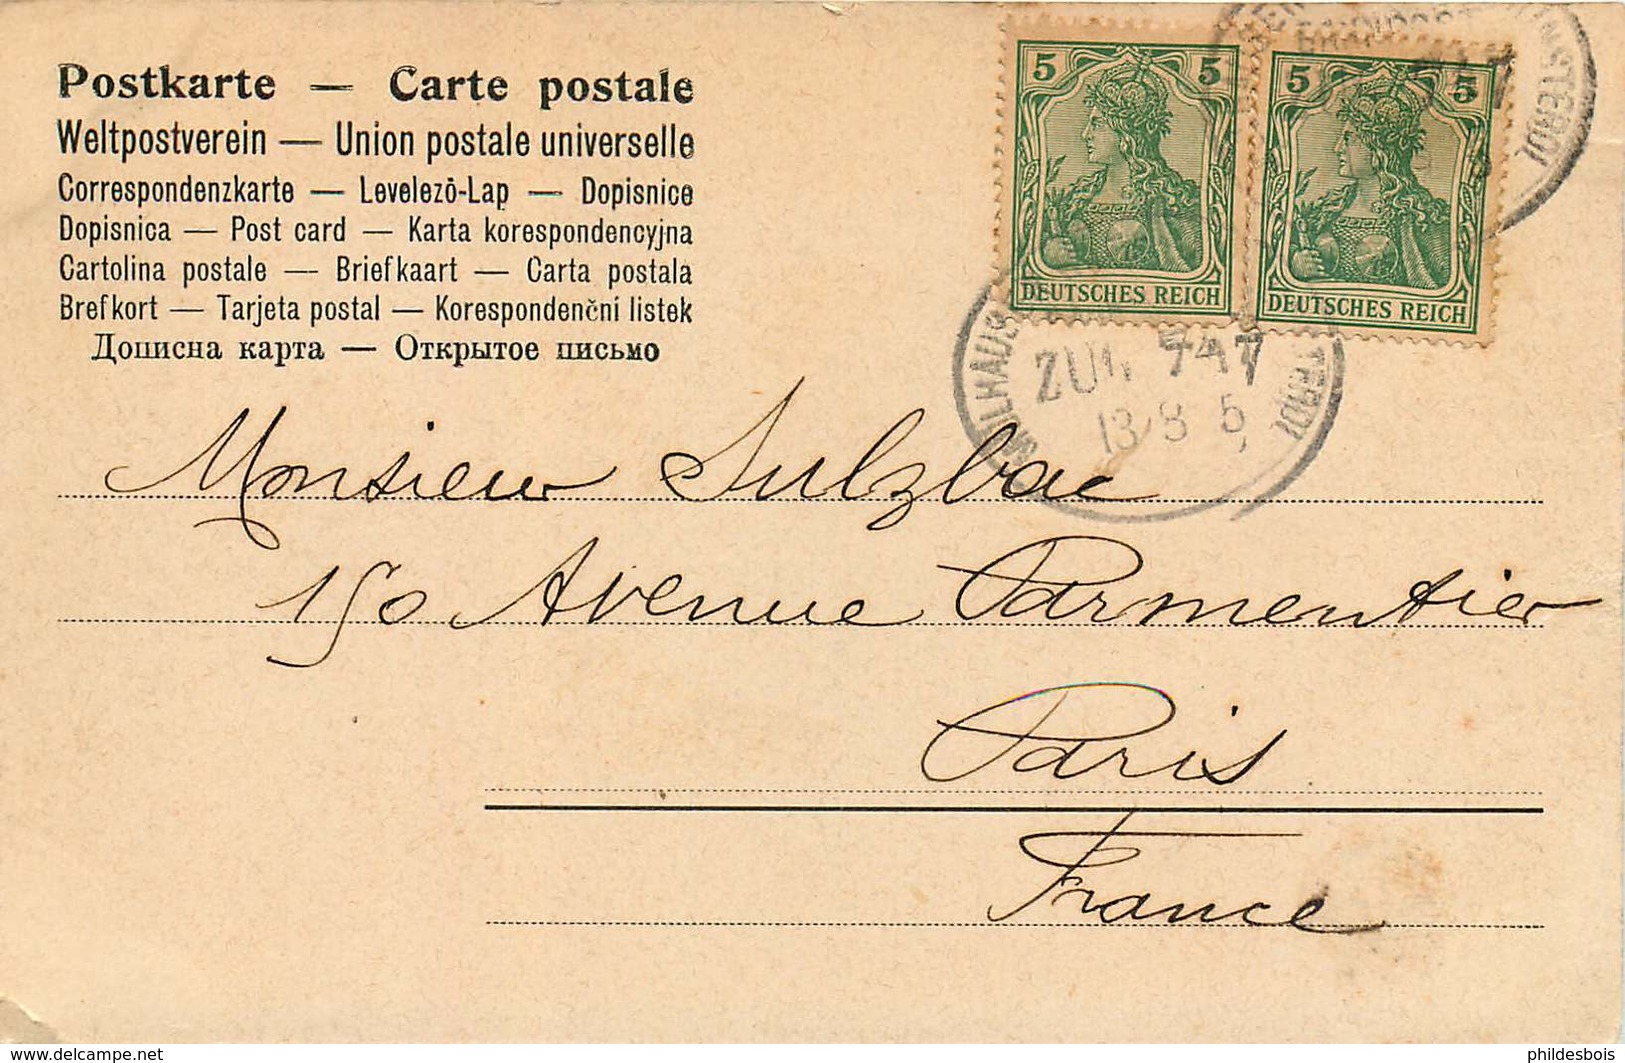 Postkarte — Carte postale
Weltpostverein — Union postale universelle
Correspondenzkarte — Levelezō-Lap — Dopisnice
Dopisnica — Post card — Karta korespondencyjna
Cartolina postale — Briefkaart — Carta postala
Brefkort — Tarjeta postal — Korespondenčni listek
Дописна карта — Открытое письмо
5 5
DEUTSCHES REICH
5 5
DEUTSCHES REICH
ZUG 747
13 8 5
Monsieur Sulzbac
150 Avenue Parmentier
Paris
France
www.delcampe.net
phildesbois